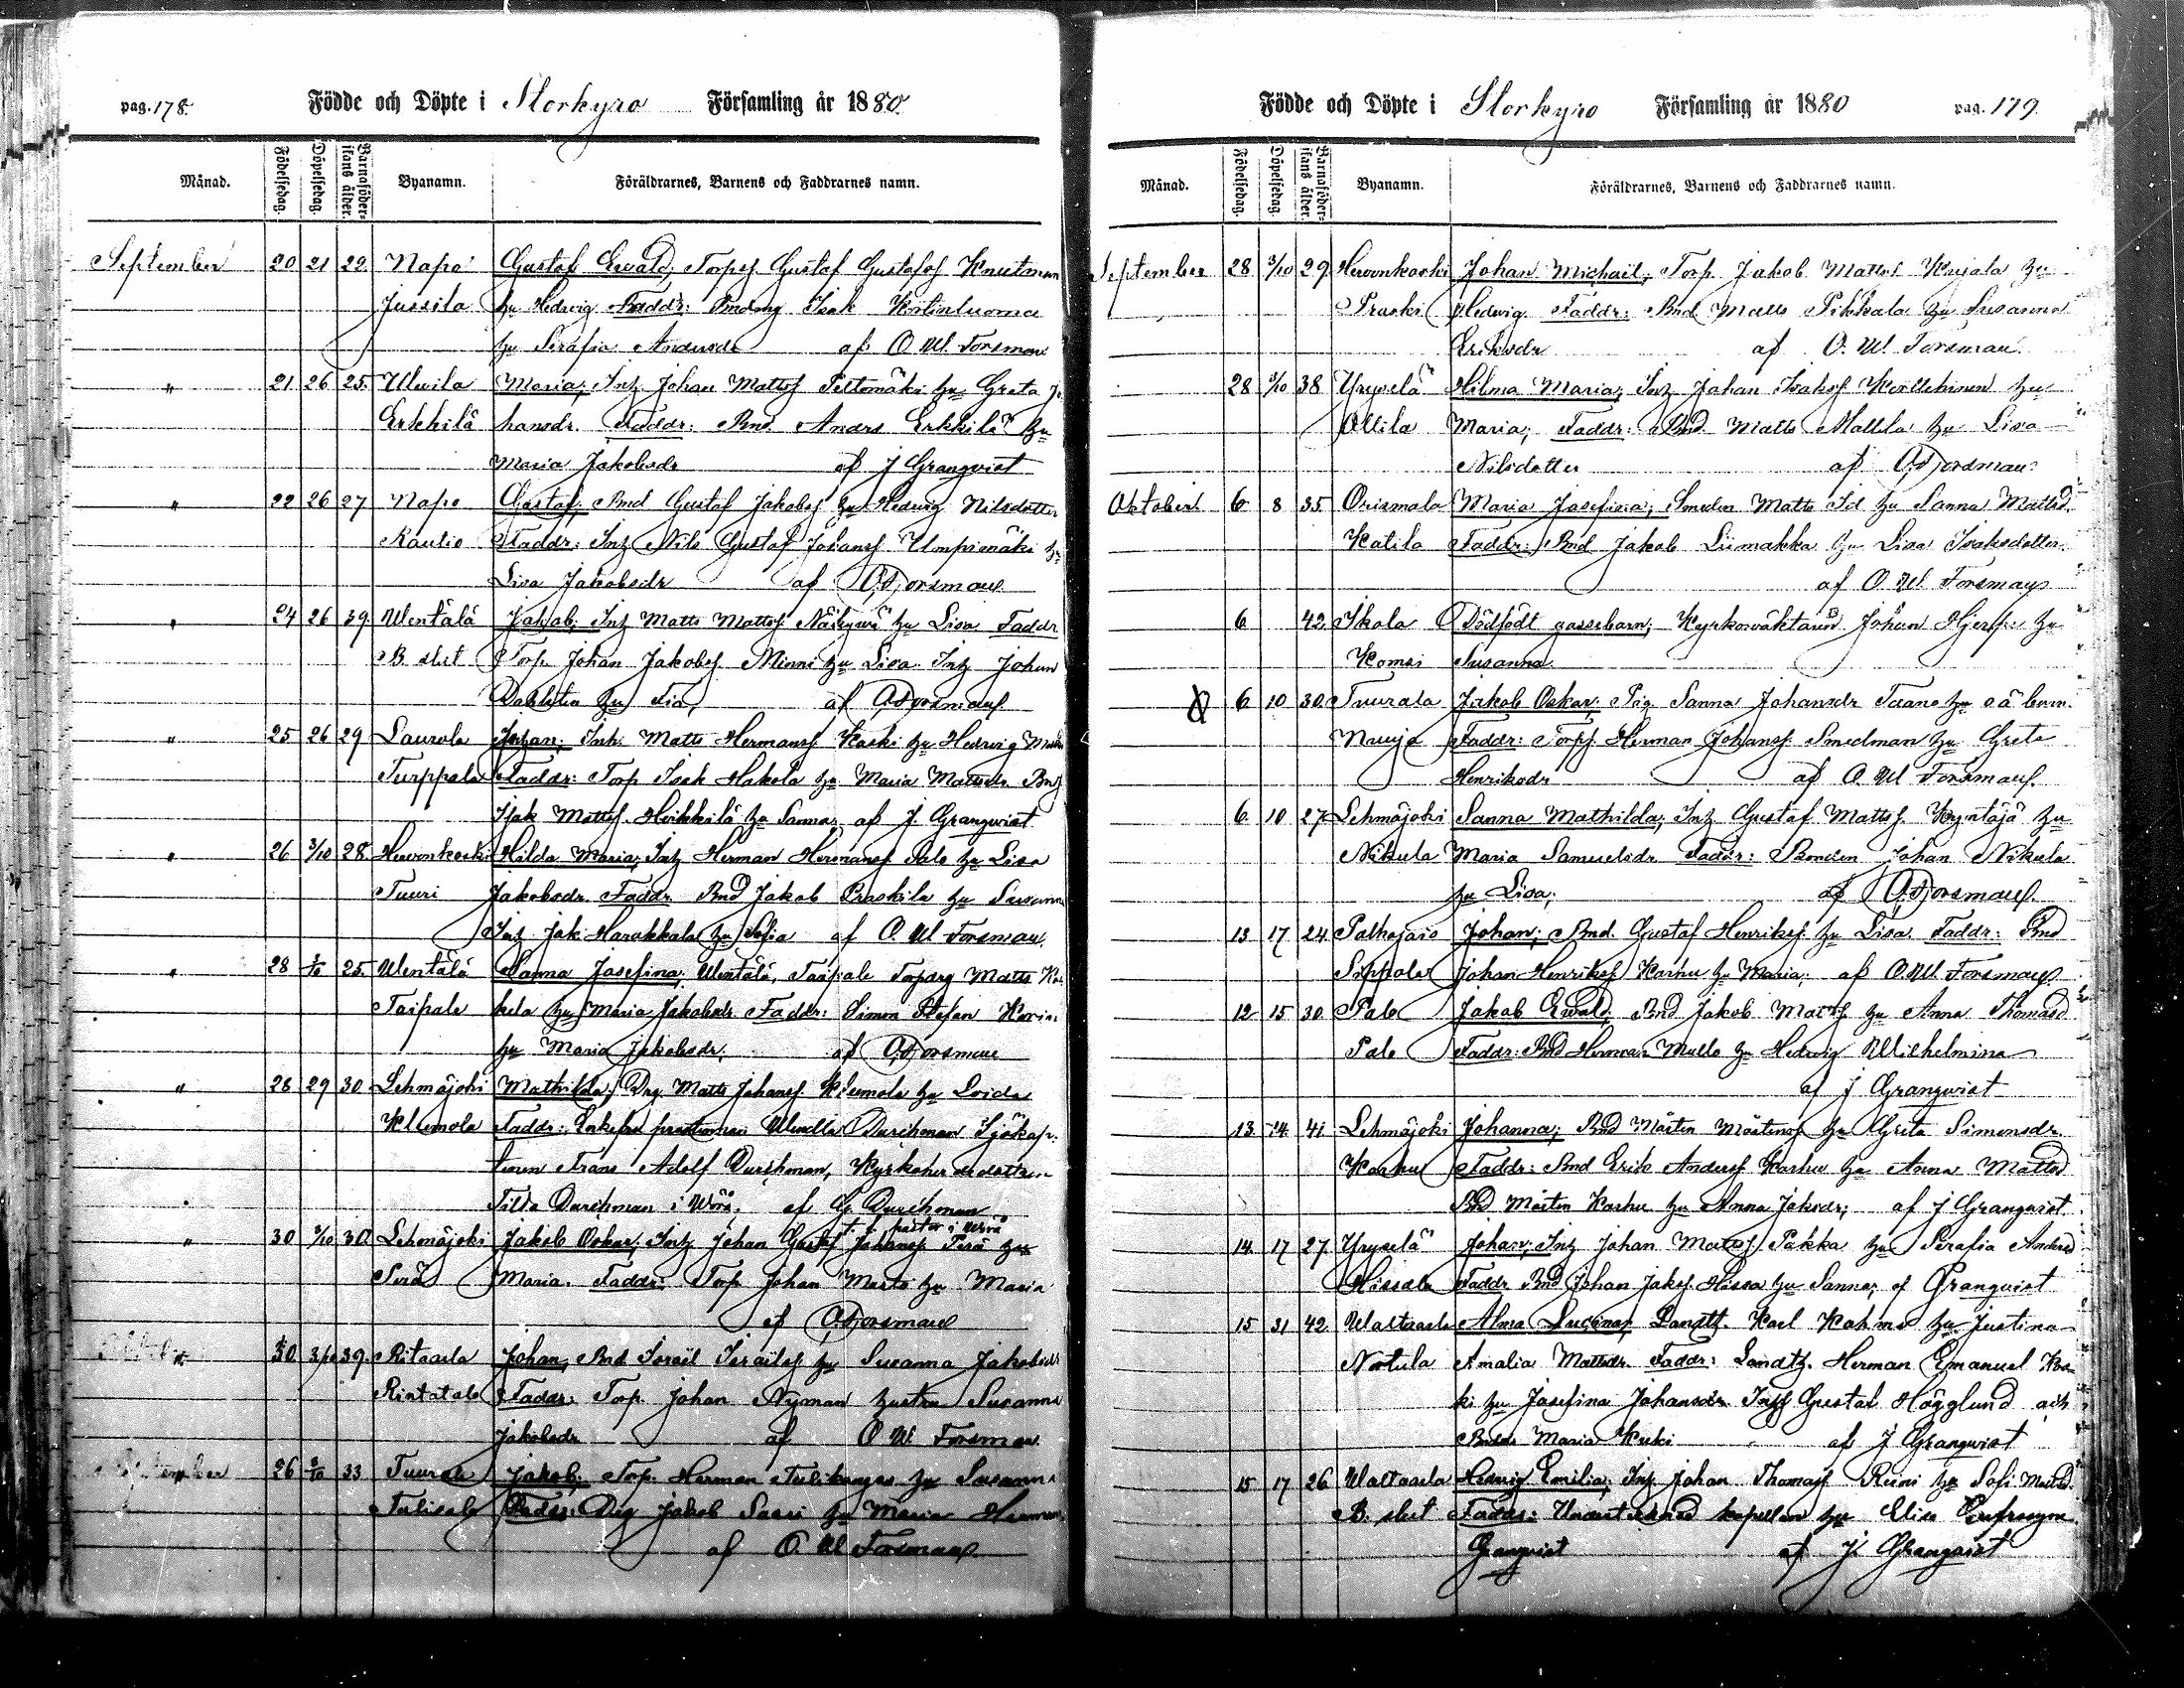 pag. 178.
Födde och Döpte i Storkyro Församling år 1880.
Månad. Födelsedag. Döpelsedag. Barnaföderskans ålder. Byanamn. Föräldrarnes, Barnens och Faddrarnes namn.
September 20 21 22 Napo Gustaf Ewald, Torpsf. Gustaf Gustafsf Knutman
Jussila hu Hedwig Faddr: Isak Kotinluoma
hu Serafia Andersdr af O. W. Forsman
" 21 26 25 Ulwila Maria; Inh Johan Mattsf Peltomäki hu Greta Jo
Erkkilä hansdr. Faddr: Bnd. Anders Erkkilä hu
Maria Jakobsdr af J Granqvist
" 22 26 27 Napo Gustaf; Bnd Gustaf Jakobsf hu Hedwig Nilsdotter
Rautio Faddr: Inh Nils Gustaf Johansf Ulmpimäki hu
Lisa Jakobsdr af O. Forsman
" 24 26 39 Wentälä Jakob; Inh Matts Mattsf hu Lisa Faddr
B. slut Torp. Johan Jakobsf. Minni hu Lisa Inh Johan
hu Fia, af O Forsman
" 25 26 29 Laurola Johan; Inh. Matts Hermansf Koski hu Hedwig
Turppala Faddr: Torp Isak Hakola hu Maria Mattsdr Bnd
Isak Mattsf. Heikkilä hu Sanna; af J. Granqvist
" 26 3/10 28 Herwonkoski Hilda Maria; Inh Herman Hermansf Palo hu Lisa
Tuuri Jakobsdr. Faddr. Bnd Jakob Praskila hu Susanna
Inh Jak. Harakkala hu Sofia af O. W Forsman.
" 28 3/10 25 Wentälä Sanna Josefina; Wentälä, Taipale Torparg Matts
Taipale kela hu Maria Jakobsdr. Faddr: Simon Stefan
hu Maria Jakobsdr. af O. Forsman
" 28 29 30 Lehmäjoki Mathilda; Drg Matts Johansf. Klemola hu Lovisa
Klemola Faddr: Enkefru prostinnan Wendla Durchman Sjökap-
tenen Frans Adolf Durchman, Kyrkoherdedottren
Tilda Durchman i Wörå. af G. Durchman
t. f. pastor i Wörå
" 30 3/10 30 Lehmäjoki Jakob Oskar; Inh Johan Gustaf Johansf Perä hu
Perä Maria. Faddr: Torp Johan Marto hu Maria
af O. Forsman
" 30 3/10 39. Ritaala Johan, Bnd Israël Israëlsf hu Susanna Jakobsdr
Rintatalo Faddr: Torp. Johan Nyman hustru Susanna
Jakobsdr af O W. Forsman
September 26 3/10 33 Tuurala Jakob; Torp. Herman Tulikangas hu Susanna
Tulisalo Faddr: Drg Jakob Saari hu Maria Herman
af O. W Forsman
pag. 179.
Födde och Döpte i Storkyro Församling år 1880
Månad. Födelsedag. Döpelsedag. Barnaföderskans ålder. Byanamn. Föräldrarnes, Barnens och Faddrarnes namn.
September 28 3/10 29 Herwonkoski Johan Michaël; Torp. Jakob Mattsf Kujala hu
Praski Hedwig. Faddr: Bnd Matts Pikkala hu Susanna
Eriksdr af O. W. Forsman.
28 3/10 38 Yryselä Hilma Maria; Inh Johan Isaksf hu
Ollila Maria; Faddr: Bnd Matts Mattila hu Lisa
Nilsdotter af O Forsman
Oktober 6 8 35 Orismala Maria Josefina; Smeden Matts hu Sanna Mattsd.
Katila Faddr: Bnd Jakob Liimakka hu Lisa Isaksdotter.
af O. W. Forsman
6 42 Ikola Dödfödt gossebarn; Kyrkowäktaren Johan hu
Komsi Susanna.
6 10 30 Tuurala Jakob Oskar; Pig Sanna Johansdr oä barn.
Nuuja Faddr: Torpf. Herman Johansf. Smedman hu Greta
Henriksdr af O. W Forsman.
6 10 27 Lehmäjoki Sanna Mathilda; Inh Gustaf Mattsf. Kyntäjä hu
Nikula Maria Samuelsdr Faddr: Bonden Johan Nikula
hu Lisa; af O. Forsman.
13 17 24 Palhojais Johan; Bnd. Gustaf Henriksf. hu Lisa. Faddr: Bnd
Soppola Johan Henriksf Karhu hu Maria; af O. W. Forsman
12 15 30 Palo Jakob Ewald; Bnd Jakob Mattsf hu Anna Thomasd
Palo Faddr: Bnd Herman hu Hedwig Wilhelmina
af J Granqvist
13 14 41 Lehmäjoki Johanna; Bnd Mårten Mårtensf hu Greta Simonsdr
Karhu Faddr: Bnd Erik Andersf Karhu hu Anna Mattsd
Bnd Mårten Karhu hu Anna Jaksdr; af J Granqvist.
14 17 27 Yryselä Johan; Inh Johan Mattsf Pakka hu Serafia Andersd
Hissala Faddr Bnd Johan Jaksf. Hissa hu Sanna; af Granqvist
15 31 42 Waltaala Alma Lucina; Landtt. Karl Kahma hu Justina
Notula Amalia Mattsdr. Faddr: Landth. Herman Emanuel Kos
ki hu Josefina Johansdr Gustaf Högglund och
Bnds Maria Kuki af J Granqvist
15 17 26 Waltaala Hedwig Emilia; Inh Johan Thomasf Reini hu Sofi Mattsd.
B. slut Faddr: Undertecknad kapellan hu Elise Eufrosyne
Granqvist af J. Granqvist